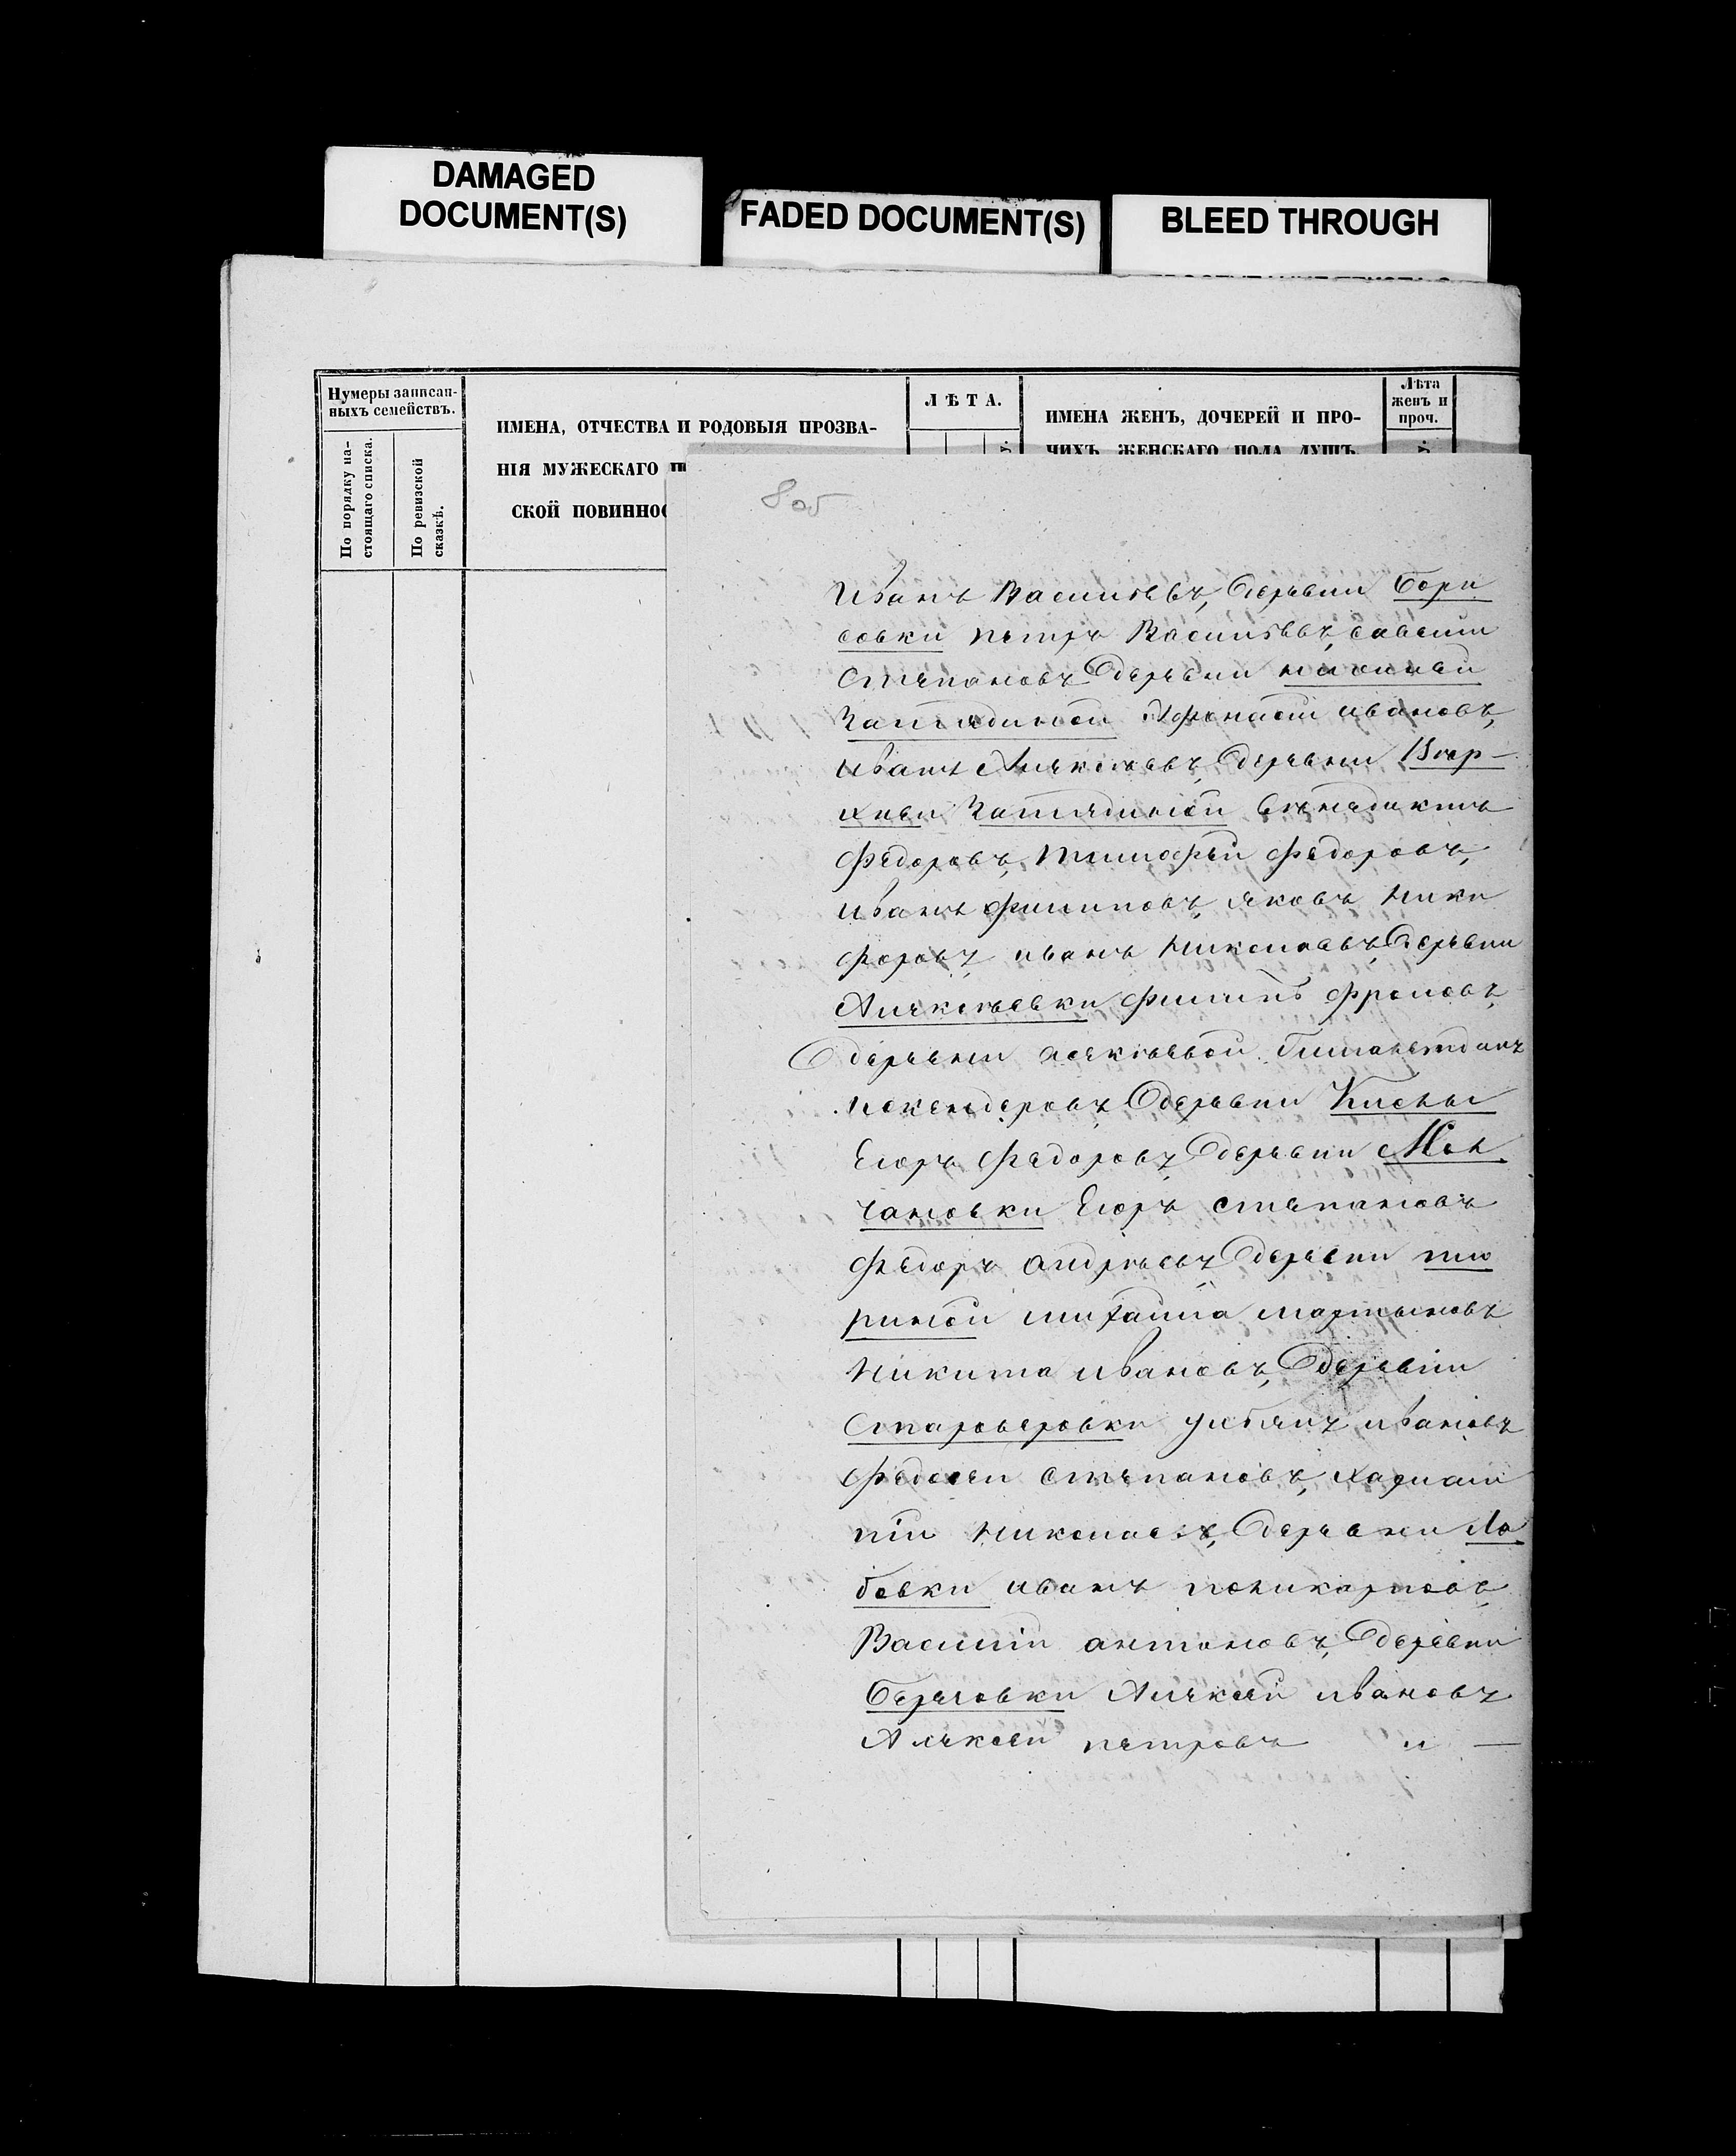 DAMAGED
DOCUMENT(S)
FADED DOCUMENT(S)
BLEED THROUGH
Нумеры записан-
ныхъ семействъ.
По порядку на-
стоящаго списка.
По ревизской
сказкѣ.
ИМЕНА, ОТЧЕСТВА И РОДОВЫЯ ПРОЗВА-
НІЯ МУЖЕСКАГО
СКОЙ ПОВИННОС
ЛѢТА.
ИМЕНА ЖЕНЪ, ДОЧЕРЕЙ И ПРО-
ЧИХЪ ЖЕНСКАГО ПОЛА ДУШЪ
Лѣта
женъ и
проч.
805
Иванъ Васильевъ, деревни Бори
совки петръ Васильевъ, савели
Степановъ деревни нижней
Афонаси ивановъ,
иванъ Алексѣевъ, деревни Вер-
хней венедиктъ
Федоровъ, тимофѣй Федоровъ,
иванъ филиповъ, яковъ Ники
форовъ, иванъ Николаевъ, деревни
Алексѣевки филипъ фроловъ,
деревни
искендеровъ деревни
Егоръ Федоровъ, деревни Мол
чановки Егоръ степановъ
Федоръ андрѣевъ деревни тю
риной михайла мартыновъ
Никита ивановъ, деревни
Староверовки ульянъ ивановъ
Федосеи Степановъ,
Николаевъ, деревни Ло
бовки иванъ поликарповъ,
Василій антоновъ, деревни
Алексѣй ивановъ
Алексѣй петровъ и —